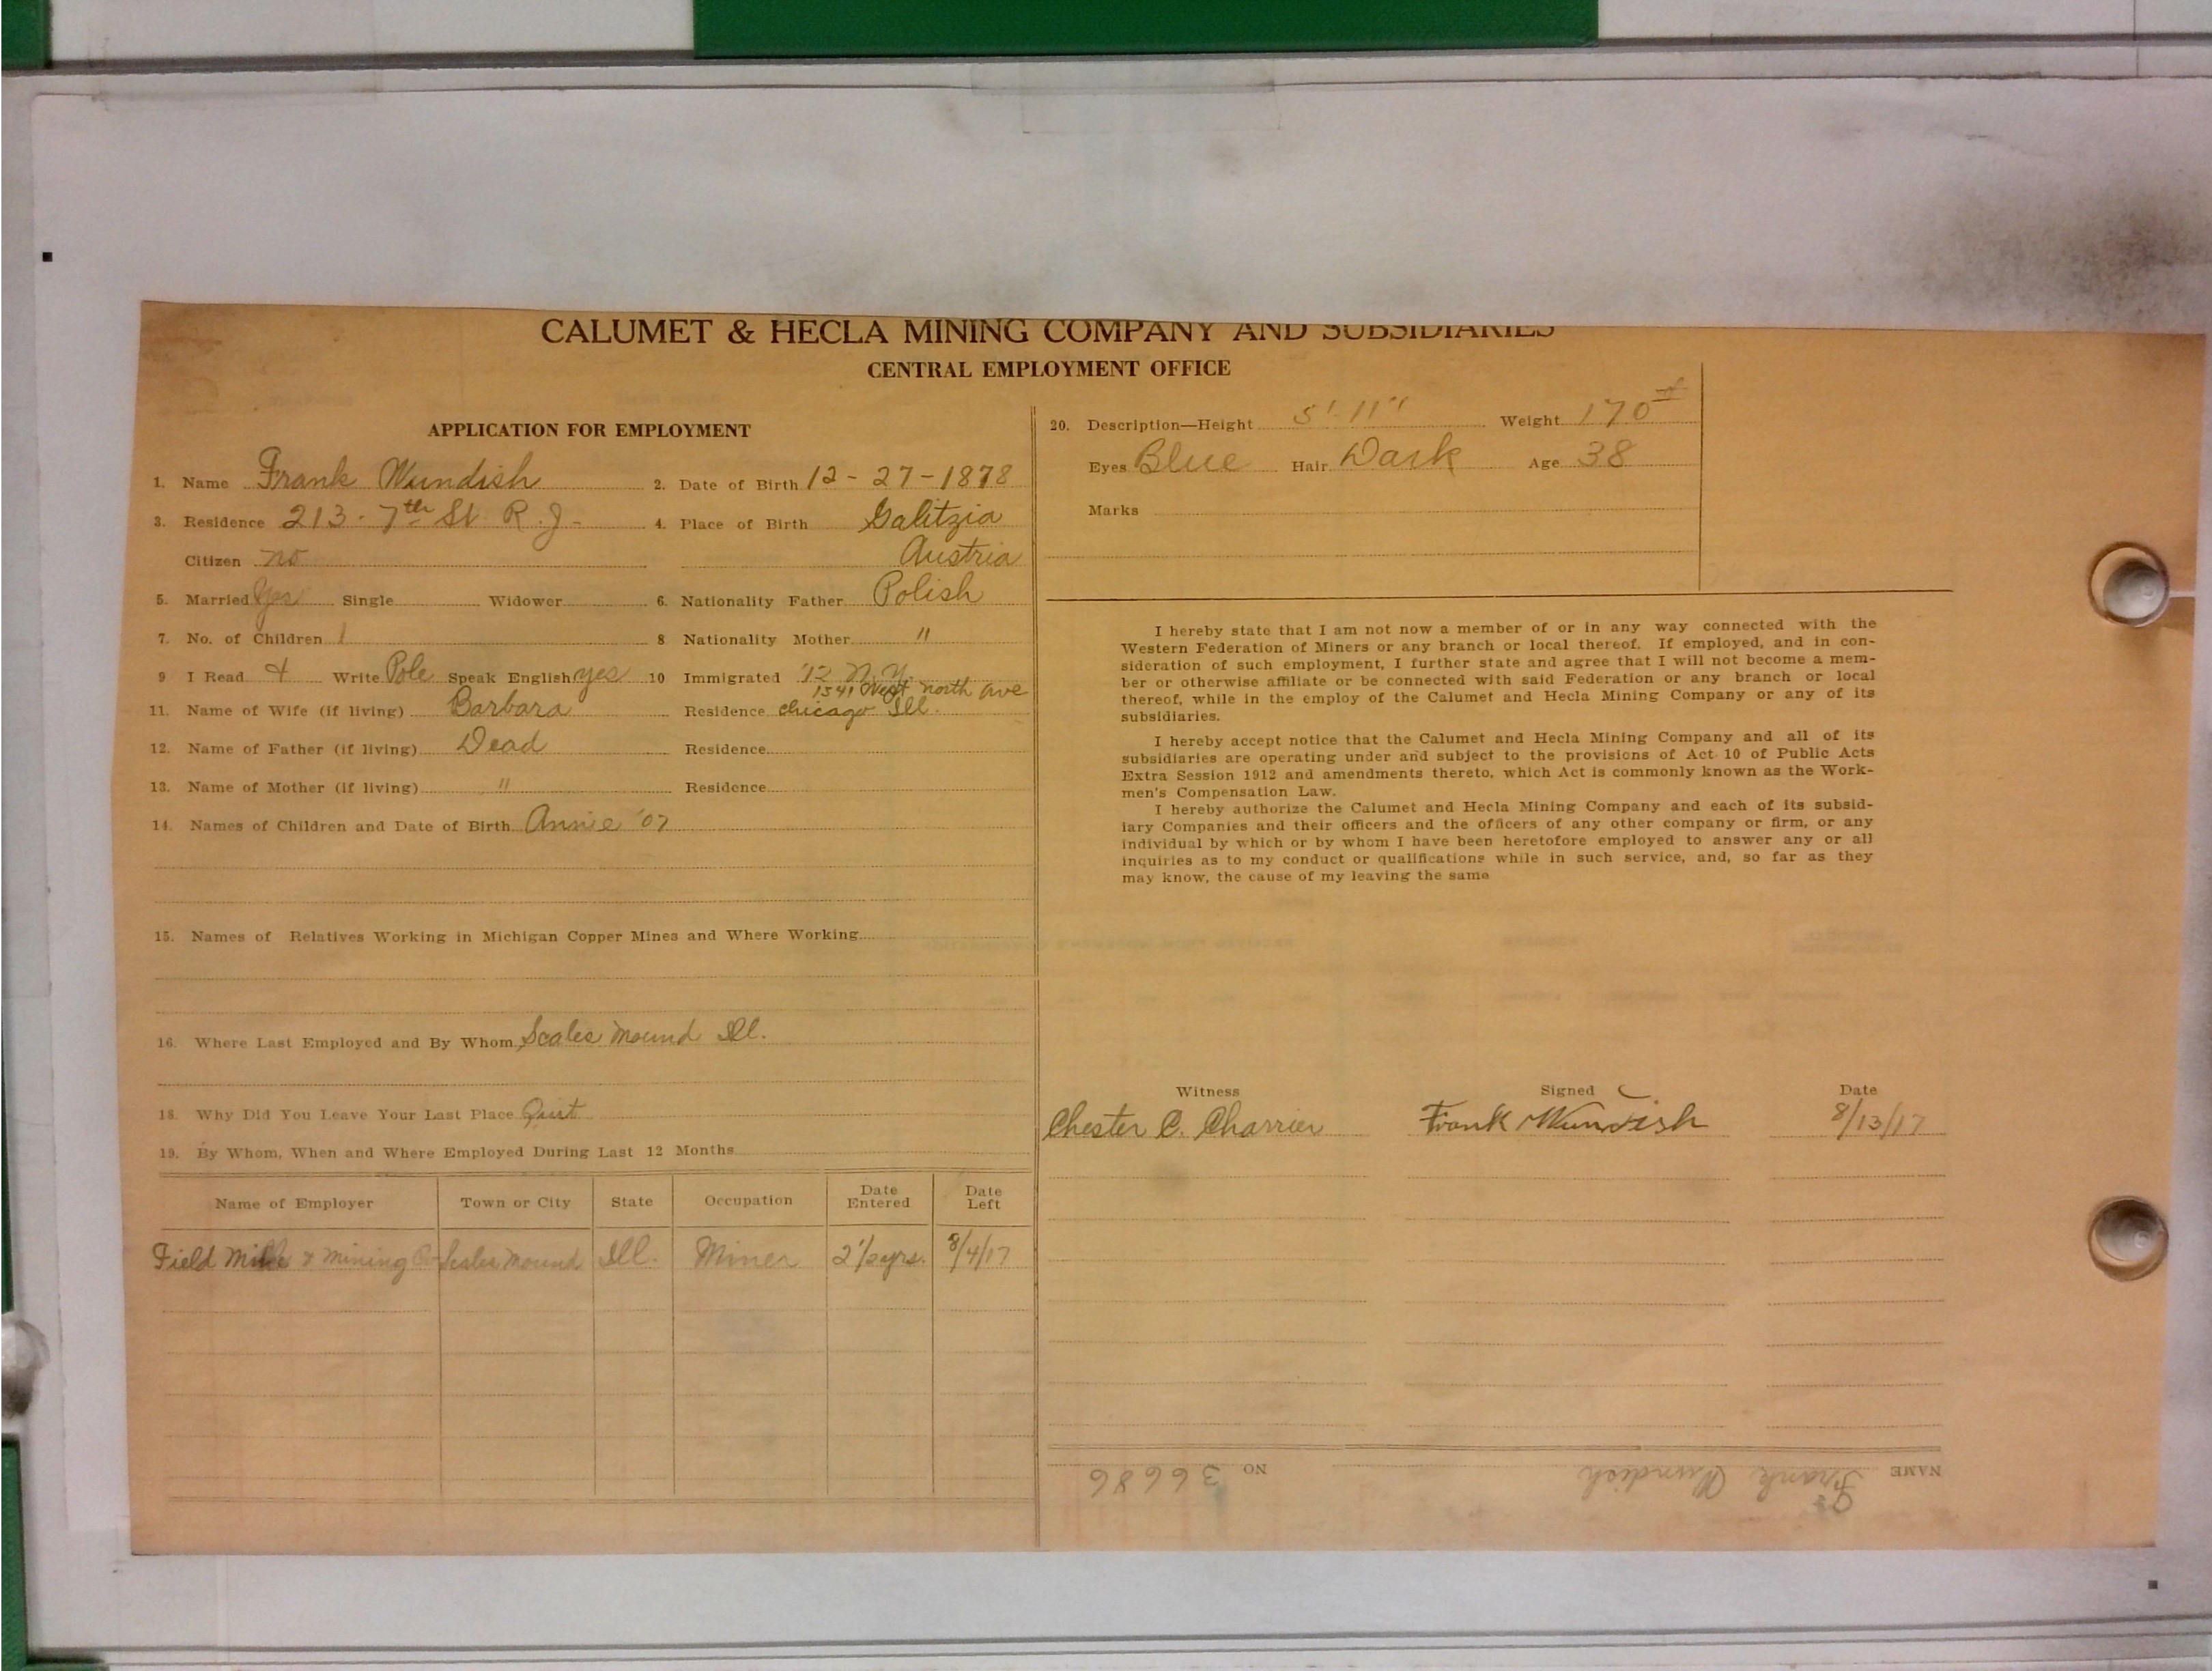 CALUMET & HECLA MINING COMPANY AND SUBSIDIARIES
CENTRAL EMPLOYMENT OFFICE
APPLICATION FOR EMPLOYMENT
1. Name Frank Wundish 2. Date of Birth 12-27-1878
3. Residence 213 - 7th St R.J. 4. Place of Birth Galitzia
Citizen no Austria
5. Married Yes Single Widower 6. Nationality Father Polish
7. No. of Children 1 8 Nationality Mother "
9 I Read & Write Pole Speak English yes 10 Immigrated '12 N.Y.
1541 West north ave
11. Name of Wife (if living) Barbara Residence chicago Ill.
12. Name of Father (if living) Dead Residence
13. Name of Mother (if living) " Residence
14. Names of Children and Date of Birth Annie '07
15. Names of Relatives Working in Michigan Copper Mines and Where Working
16. Where Last Employed and By Whom Scales Mound Ill.
18. Why Did You Leave Your Last Place Quit
19. By Whom, When and Where Employed During Last 12 Months
Name of Employer Town or City State Occupation Date Entered Date Left
Field & Mining Co Scales Mound Ill. Miner 2 1/2 yrs. 8/4/17
20. Description—Height 5'-11" Weight 170#
Eyes Blue Hair Dark Age 38
Marks
I hereby state that I am not now a member of or in any way connected with the
Western Federation of Miners or any branch or local thereof. If employed, and in con-
sideration of such employment, I further state and agree that I will not become a mem-
ber or otherwise affiliate or be connected with said Federation or any branch or local
thereof, while in the employ of the Calumet and Hecla Mining Company or any of its
subsidiaries.
I hereby accept notice that the Calumet and Hecla Mining Company and all of its
subsidiaries are operating under and subject to the provisions of Act 10 of Public Acts
Extra Session 1912 and amendments thereto, which Act is commonly known as the Work-
men's Compensation Law.
I hereby authorize the Calumet and Hecla Mining Company and each of its subsid-
iary Companies and their officers and the officers of any other company or firm, or any
individual by which or by whom I have been heretofore employed to answer any or all
inquiries as to my conduct or qualifications while in such service, and, so far as they
may know, the cause of my leaving the same
Witness Signed Date
Chester C. Charrier Frank Wundish 8/13/17
NAME Frank Wundish NO 36686